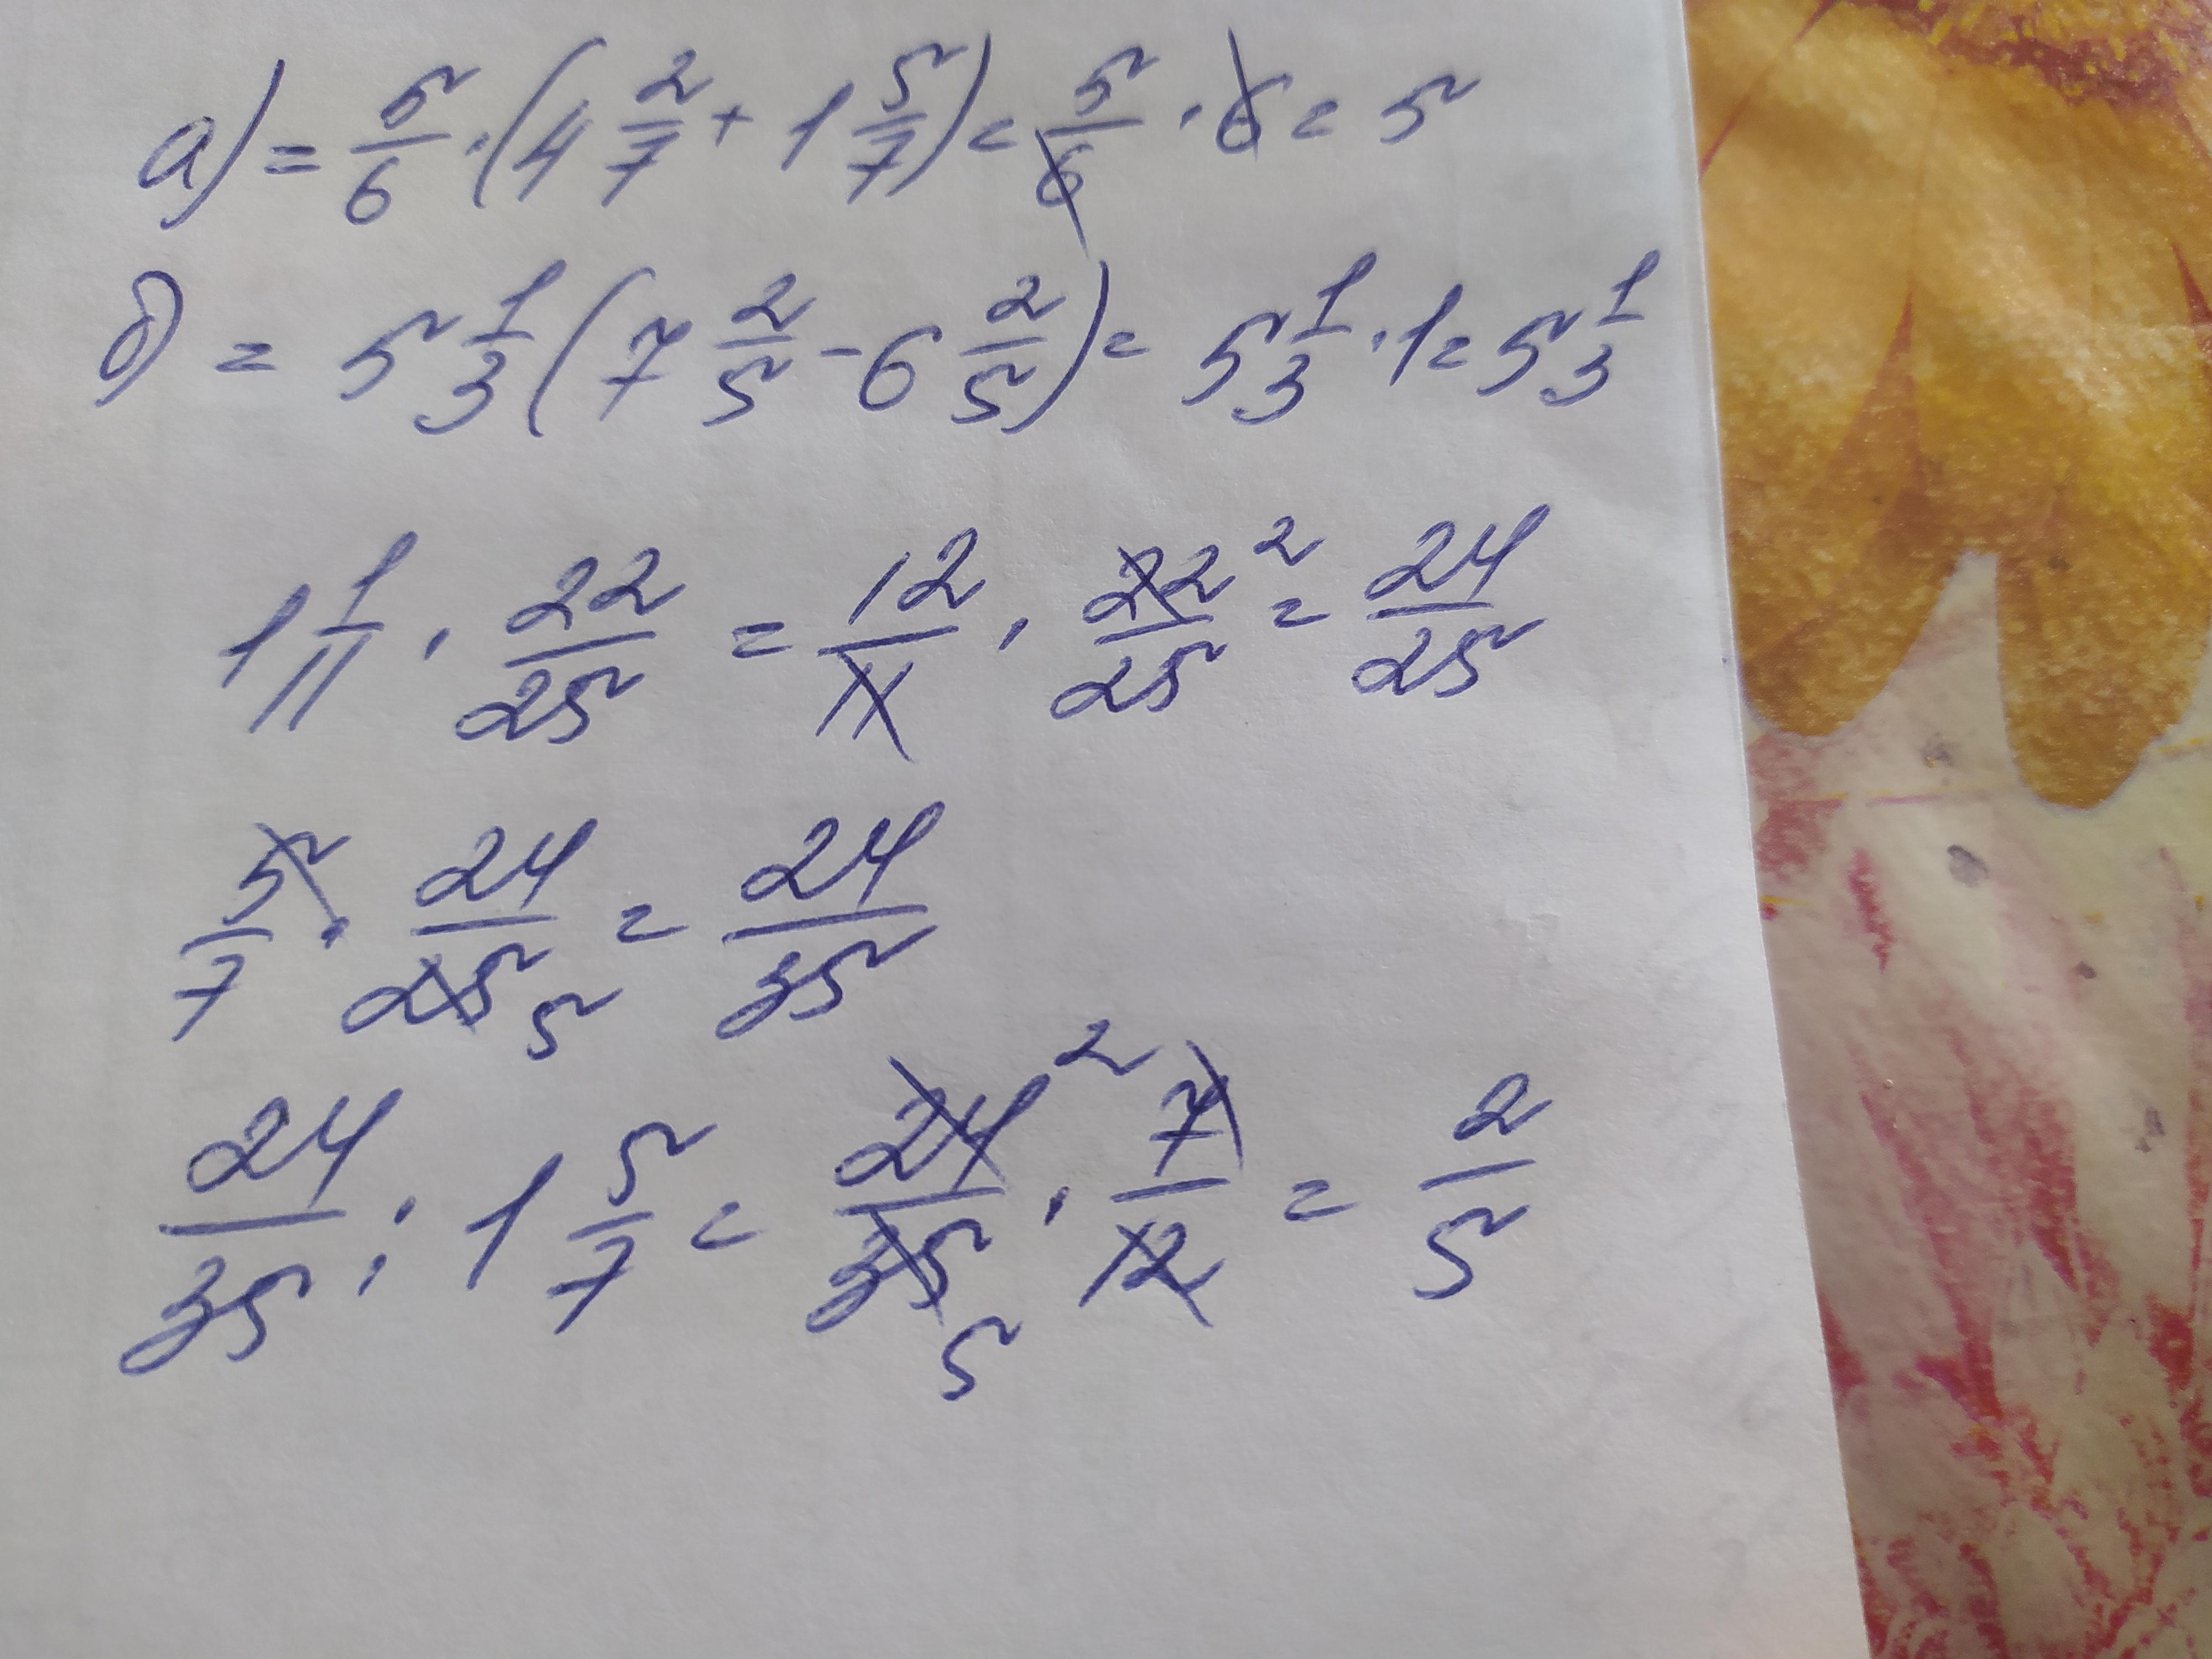 а) = 5/6 · (4 2/7 + 1 5/7) = 5/6 · 6 = 5
б) = 5 1/3 (7 2/5 - 6 2/5) = 5 1/3 · 1 = 5 1/3
1 1/11 · 22/25 = 12/11 · 22/25 2 = 24/25
5/7 · 24/25 5 = 24/35
24/35 : 1 5/7 = 24 2/35 5 · 7/12 = 2/5